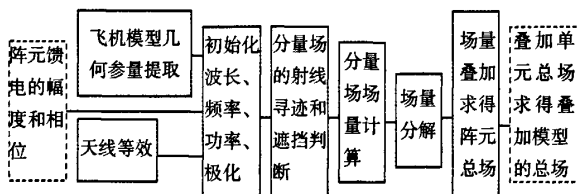 阵元馈
电的幅
度和相
位
飞机模型几
何参量提取
天线等效
初始化
波长、
频率、
功率、
极化
分量场
的射线
寻迹和
遮挡判
断
分量
场场
量计
算
场量
分解
场量
叠加
求得
阵元
总场
叠加单
元总场
求得叠
加模型
的总场